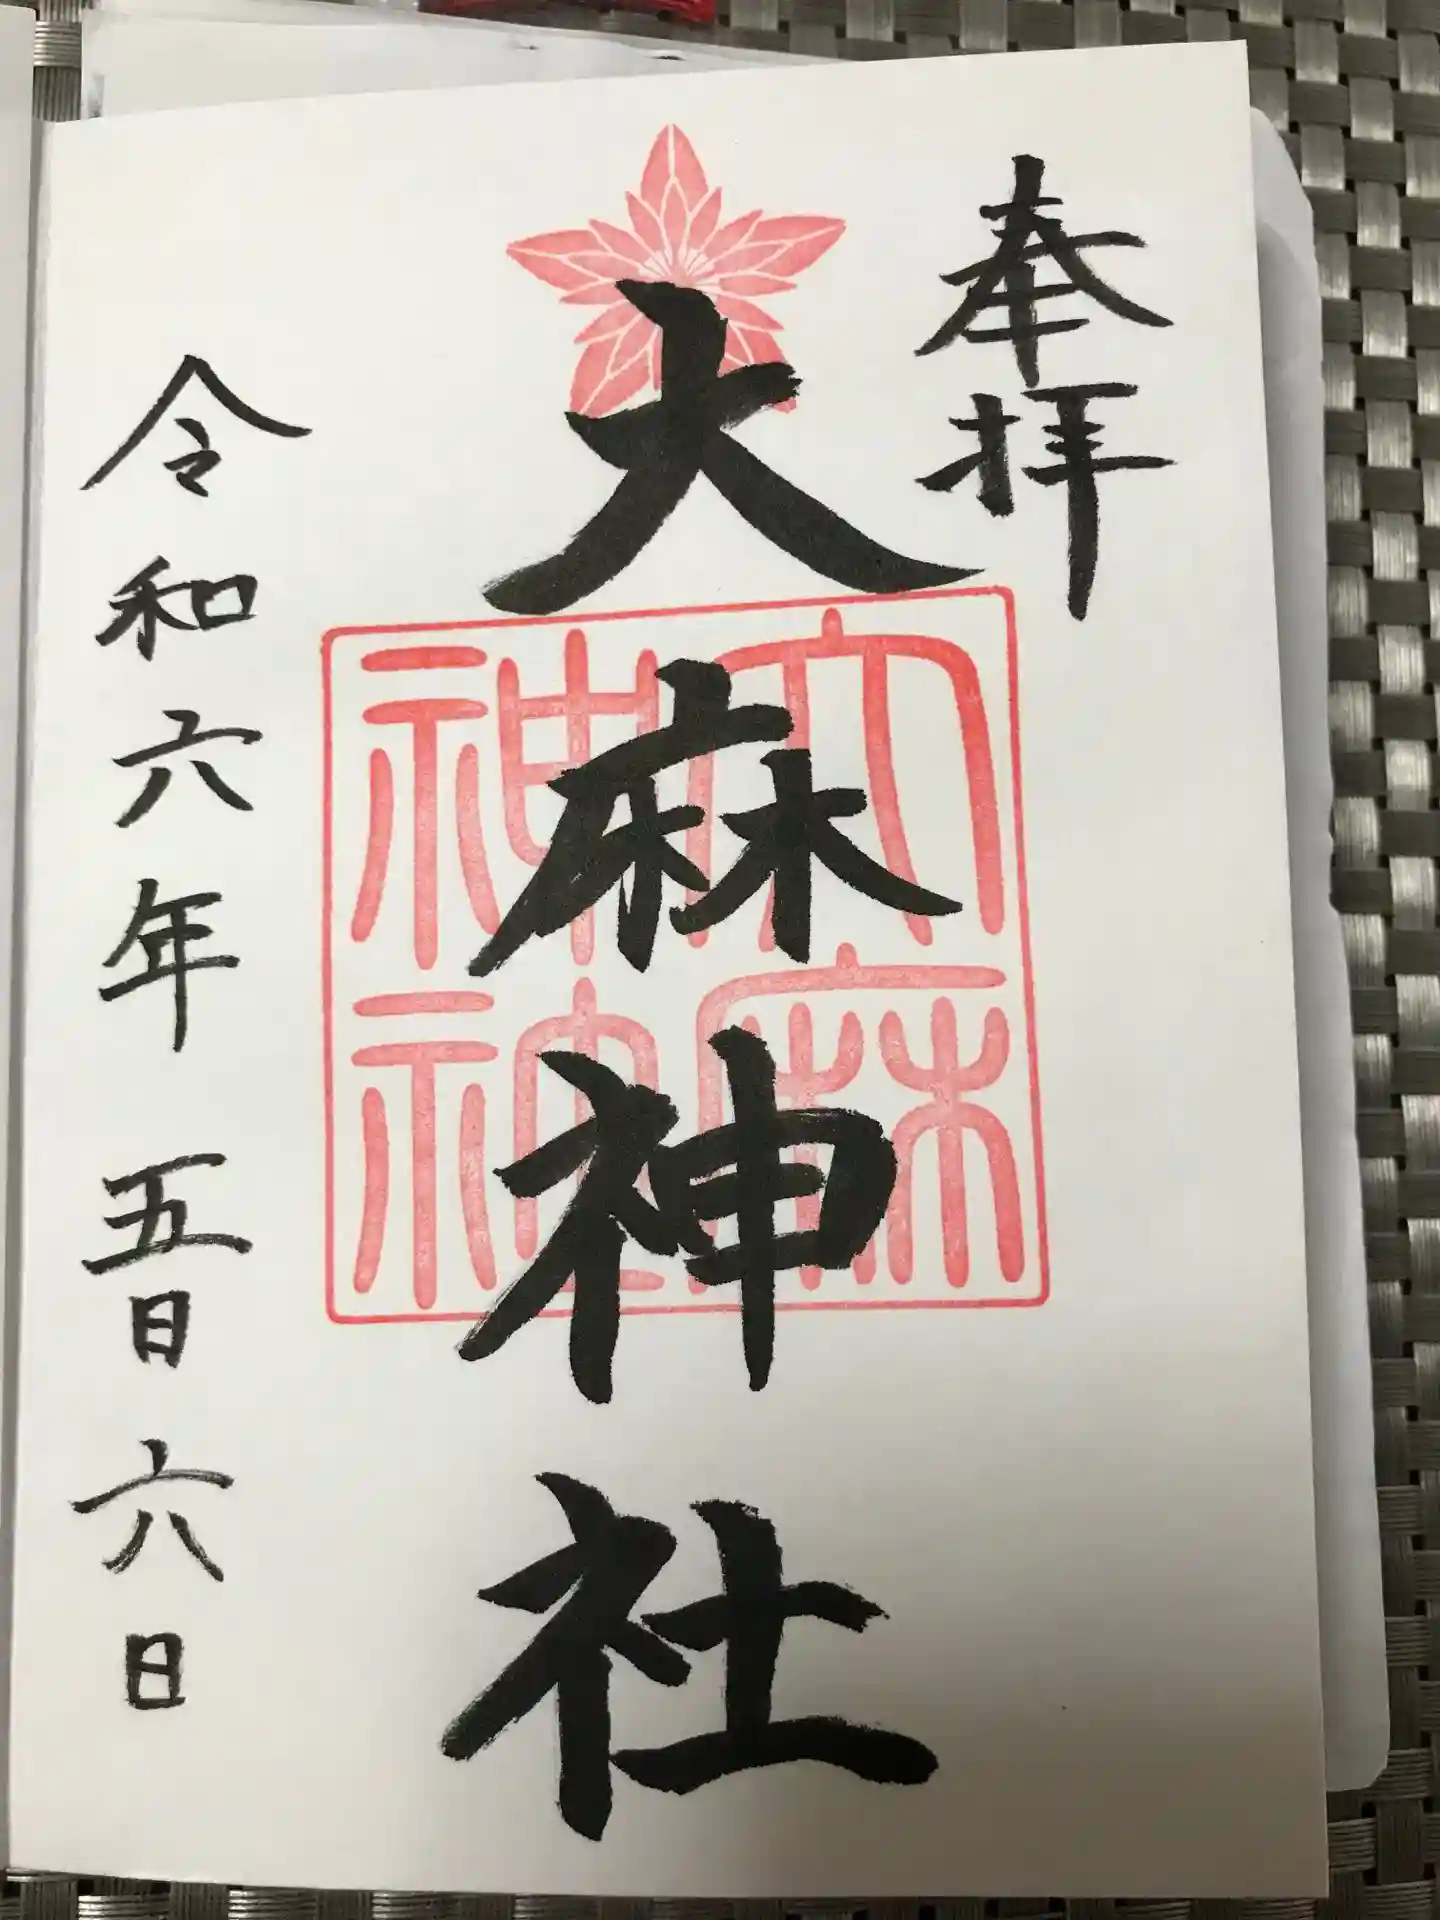 奉拝
大麻神社
大麻神神
令和六年五月六日